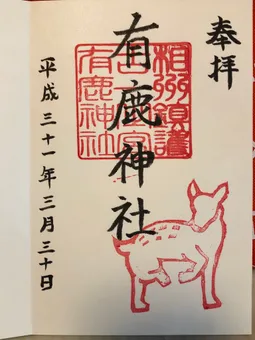 奉拝
相州鎮護
有鹿神社
有鹿神社
平成三十一年三月三十日